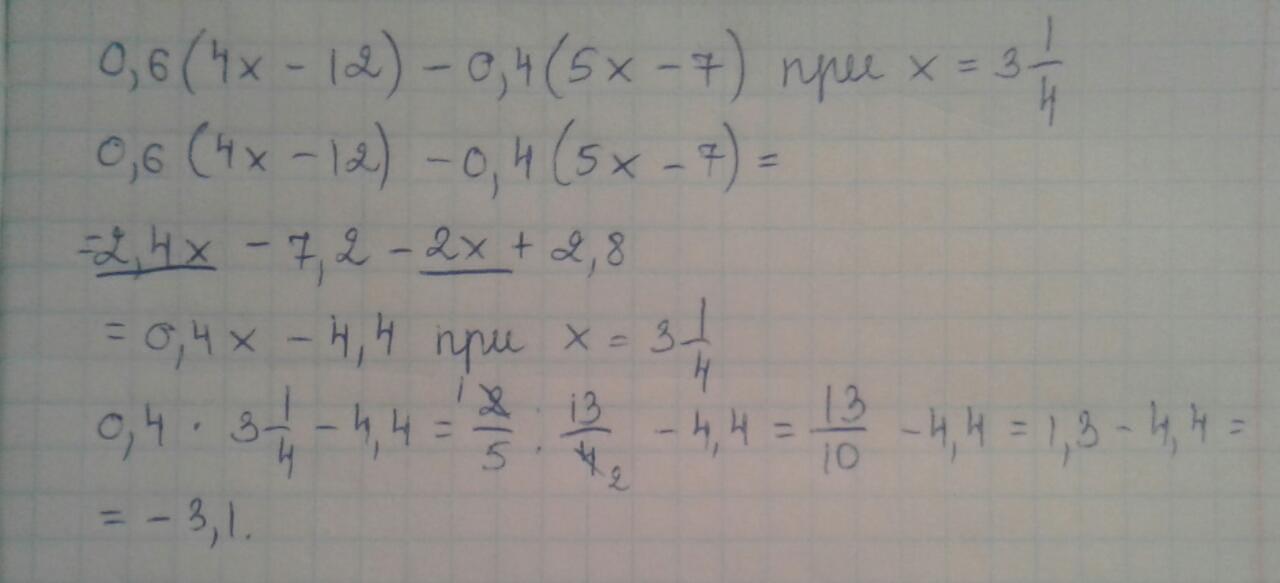 0,6(4x - 12) - 0,4(5x - 7) при x = 3 1/4
0,6(4x - 12) - 0,4(5x - 7) =
= 2,4x - 7,2 - 2x + 2,8
= 0,4x - 4,4 при x = 3 1/4
0,4 · 3 1/4 - 4,4 = 1 2/5 · 13/4 2 - 4,4 = 13/10 - 4,4 = 1,3 - 4,4 =
= - 3,1.